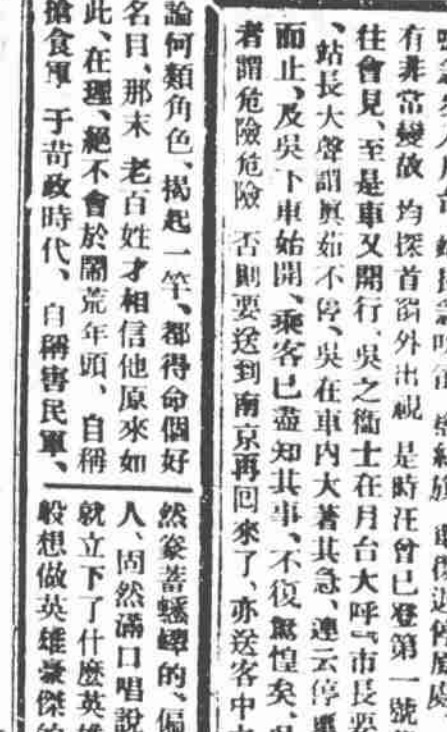 有非常變故、均探首窗外出視、是時汪曾已登第一號
往會見、至是車又開行、吳之衛士在月台大呼「市長要
、站長大聲謂眞茹不停、吳在車內大著其急、連云停
而止、及吳下車始開、乘客已盡知其事、不復驚惶矣、
者謂危險危險 否則要送到南京再回來了、亦送客中
論何類角色、揭起一竿、都得命個好
名目、那末 老百姓才相信他原來如
此、在理、絕不會於鬧荒年頭、自稱
搶食軍 于苛政時代、自稱害民軍、
然 蓄 的、偏
人、固然滿口唱說
就立下了什麼英雄
般想做英雄豪傑的